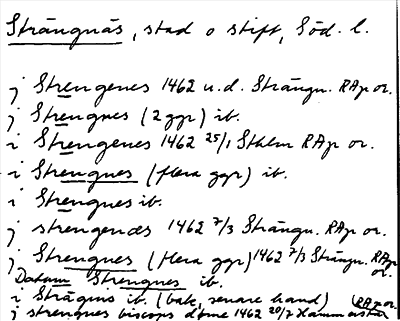 Strängnäs, stad o stift, Söd. l.
j Strengenes 1462 u.d. Strängn. RAp or.
j Strengnes (2 ggr) ib.
i Strengenes 1462 25/1 Sthlm RAp or.
i Strengnes (flera ggr) ib.
i Strengnes ib.
j strengendes 1462 7/3 Strängn. RAp or.
j Strengnes (flera ggr) 1462 7/3 Strängn. RAp or.
Datum Strengnes ib.
i Strägnus ib. (bak, senare hand) RAp or.
j strengnes biscops döme 1462 20/7